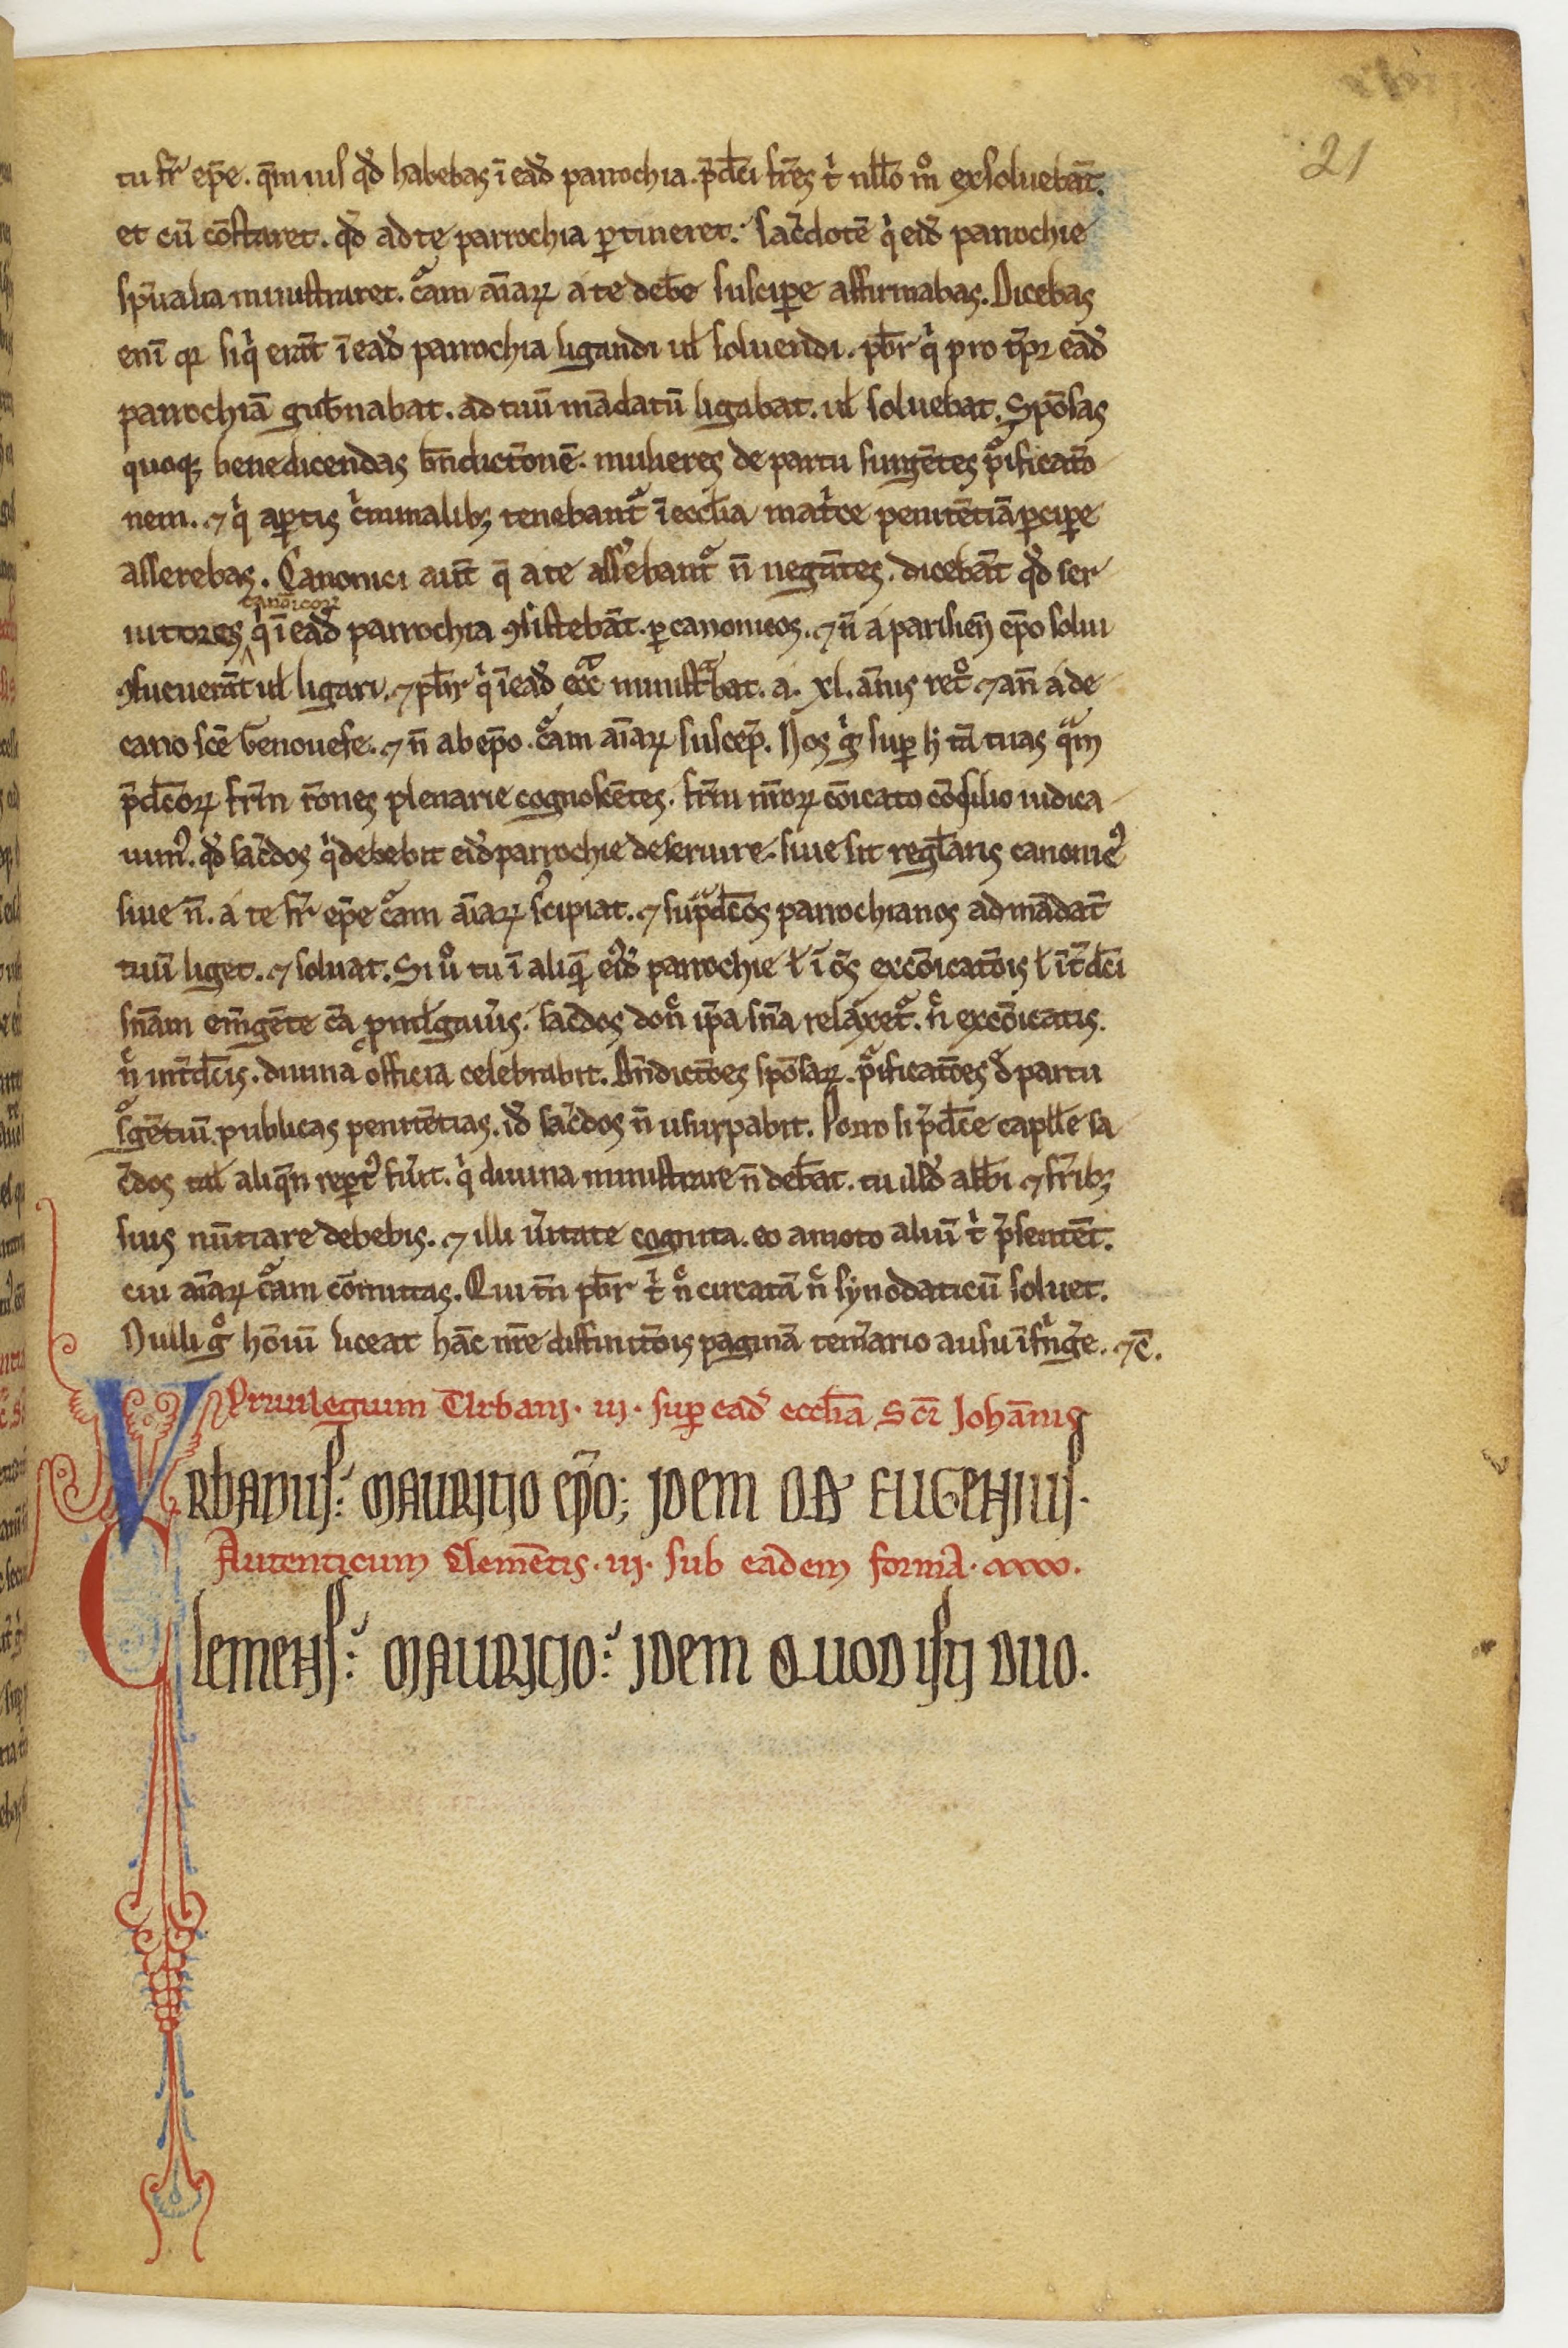 21
tu fr̄ ep̄e. q̄m ius qd̓ habebas ī ead̓ parrochia. p̄dc̄i fr̄es t̍ nłło mº exsoluebāt.
et cū cōstaret. qd̓ ad te parrochia ꝑtineret. sac̓dotē q̍ eid̓ parrochie
sp̄ualia ministraret. cᷓam aīaꝝ a te deb̄e suscipe affirmabas. Dicebas
enī ꝙ siq̍ erāt ī ead̓ parrochia ligandi ul̄ soluendi. pb̄r q̍ pro tp̄r ead̓
parrochiā gub̄nabat. ad tuū mādatū ligabat. ul̄ soluebat. Spōsas
quoqꝫ benedicendas bn̄dict̄onē. mulieres de partu surgētes pᷓificat̄o
nem. ⁊ q̍ aꝑtis c̍minalibꝫ tenebant᷑ ī eccl̄ia mat̍ce penitētiā ꝑcipe
asserebas. Canonici aūt q̄ a te ass̓ebant᷑ n̄ negātes. dicebāt qd̓ ser
canōicoꝝ
uitores q̍ ī ead̓ parrochia ꝯsistebāt. ꝑ canonicos. ⁊ n̄ a parisien̄ ep̄o solui
ꝯsueuerāt ul̄ ligari. ⁊ pb̄r q̍ ī ead̓ ministᷓbat. a. xl. annis retº ⁊ an̄ a de
cano sc̄e Genouefe. ⁊ n̄ ab ep̄o. cᷓam aīaꝝ suscep̄. Nos g̍ suꝑ h̄ tā tuas qᷓm
p̄dc̄oꝝ fr̄m rōnes plenarie cognoscētes. fr̄m nr̄oꝝ cōicato cōsilio iudica
uimꝰ. qd̓ sac̓dos q̍ debebit eid̓ parrochie deseruire. siue sit reglaris canonicꝰ
siue n̄. a te fr̄ ep̄e cᷓam aīaꝝ sꝰcipiat. ⁊ supᷓdc̄os parrochianos ad mādat̄
tuū liget. ⁊ soluat. Si uº tu ī aliq̄ eiꝰd̓ parrochie ł ī oc̄s excōicatōis ł īt̄dc̄i
sn̄am em̄gēte cā pml̄gau̓is. sac̓dos don̄ ip̄a sn̄a relaxet᷑. n̄ excōicatis.
n̄ int̄dc̄is. diuina officia celebrabit. Bn̄dictōes spōsaꝝ. pᷓificatōes d̓ partu
sᷓgētiū. publicas penitētias. id̓ sac̓dos n̄ usurpabit. Porro si p̄dc̄e capll̄e sa
c̓dos tal̄ aliq̄n reꝑtꝰ fu̓it. q̍ diuina ministrare n̄ deb̄at. tu illd̓ abb̄i ⁊ fr̄ibꝫ
suis nūtiare debebis. ⁊ illi u̓itate cognita. eo amoto aliū t̍ p̄sentēt.
cui aīaꝝ cᷓam cōmittas. Qui tn̄ pb̄r t̍ n̄ circatā n̄ synodaticū soluet.
Nulli gº hōiū liceat hāc nr̄e diffinitōis paginā tem̓ario ausu īfᷓg̓e. ⁊c̄.
Priuilegium Urbani. iij. suꝑ ead̓ eccl̄ia Sc̄i Johānis
Vrbanus. Mauricio ep̄o; Idem qd̓ Eugenius.
Autenticum Clemētis. iij. sub eādem forma.
Clemens. Mauricio. Idem quod isti duo.